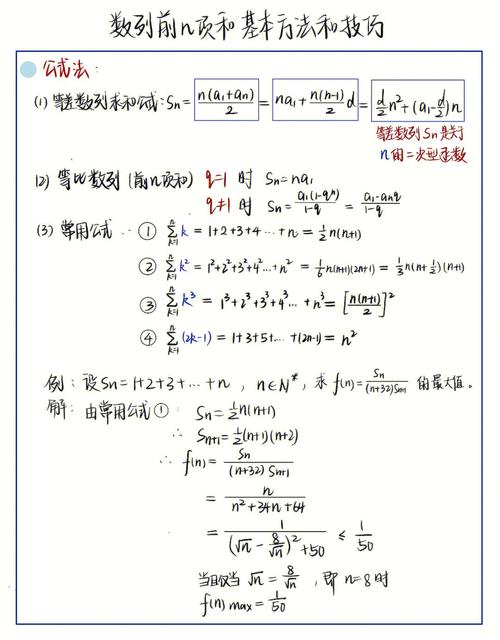 数列前n项和基本方法和技巧
公式法:
(1) 等差数列求和公式: Sn = n(a₁+an)/2 = na₁ + n(n-1)/2 d = d/2 n² + (a₁-d/2)n
等差数列Sn是关于
n的二次型函数
(2) 等比数列 (前n项和) q=1 时 Sn=na₁
q≠1 时 Sn = a₁(1-qⁿ)/1-q = a₁-anq/1-q
(3) 常用公式: ① ∑ⁿₖ₌₁ k = 1+2+3+4…+n = ½n(n+1)
② ∑ⁿₖ₌₁ k² = 1²+2²+3²+4²…+n² = 1/6 n(n+1)(2n+1) = 1/3 n(n+½)(n+1)
③ ∑ⁿₖ₌₁ k³ = 1³+2³+3³+4³…+n³ = [n(n+1)/2]²
④ ∑ⁿₖ₌₁ (2k-1) = 1+3+5+…+(2n-1) = n²
例: 设Sn=1+2+3+…+n, n∈N*, 求 f(n)= Sn/(n+32)Sn+1 的最大值。
解: 由常用公式①: Sn=½n(n+1)
∴ Sn+1=½(n+1)(n+2)
∴ f(n) = Sn/(n+32)Sn+1
= n/n²+34n+64
= 1/(√n - 8/√n)²+50 ≤ 1/50
当且仅当 √n = 8/√n, 即 n=8时
f(n) max = 1/50